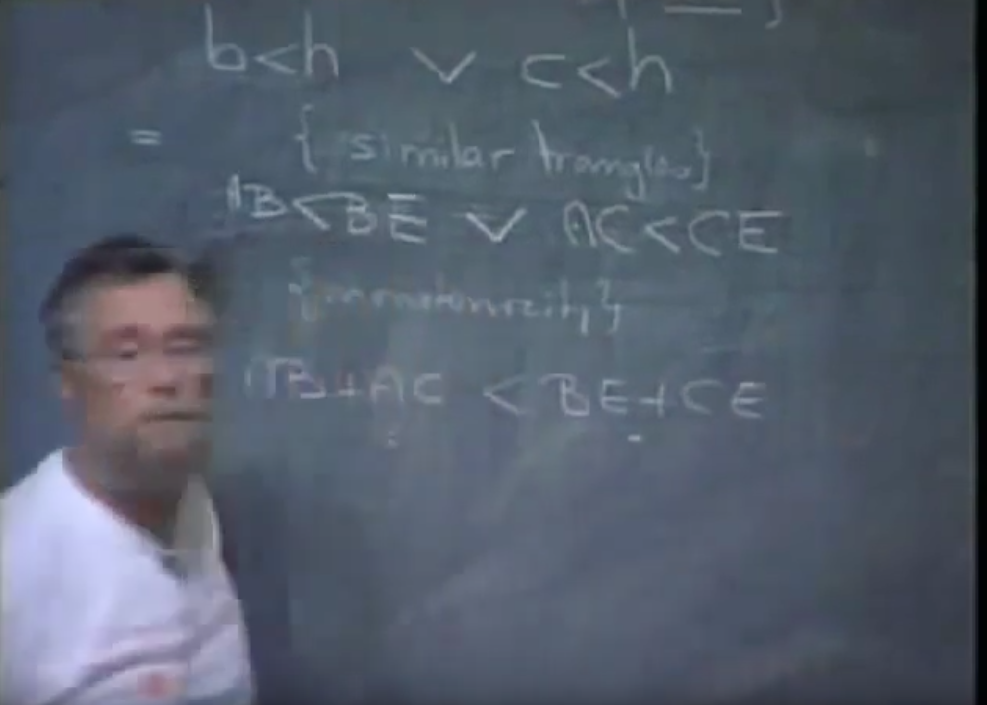 b<h ∨ c<h
= { similar triangles}
AB<BE ∨ AC<CE
{monotonicity}
AB+AC < BE+CE